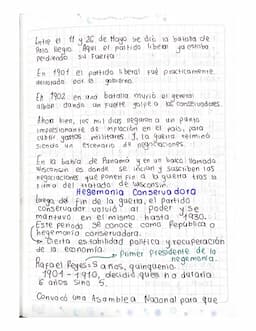 Entre el 11 y 26 de Mayo se dió la batalla de
Palo Negro. Aquí el partido liberal ya estaba
perdiendo su fuerza.
En 1901 el partido liberal fué practicamente
derrotado por el gobierno.
En 1902 en una batalla murió el general
albán dando un fuerte golpe a los conservadores.
Ahora bien, los mil días llegaron a un punto
impresionante de inflación en el país, para
cubrir gastos militares. Y la guerra terminó
siendo un escenario de negociaciones.
En la bahía de Panamá y en un barco llamado
Wisconsin es donde se inician y suscriben las
negociaciones que ponen fin a la guerra tras la
firma del tratado de Wisconsin.
Hegemonía Conservadora
Luego del fin de la guerra, el partido
conservador volvió al poder y se
mantuvo en el mismo hasta 1930.
Este periodo se conoce como República o
hegemonía conservadora.
Cierta estabilidad política y recuperación
de la economía.
Primer presidente de la
hegemonía.
Rafael Reyes = 5 años, quinquenio.
1904 - 1910, decidió que no duraría
6 años sino 5.
Convocó una Asamblea Nacional para que